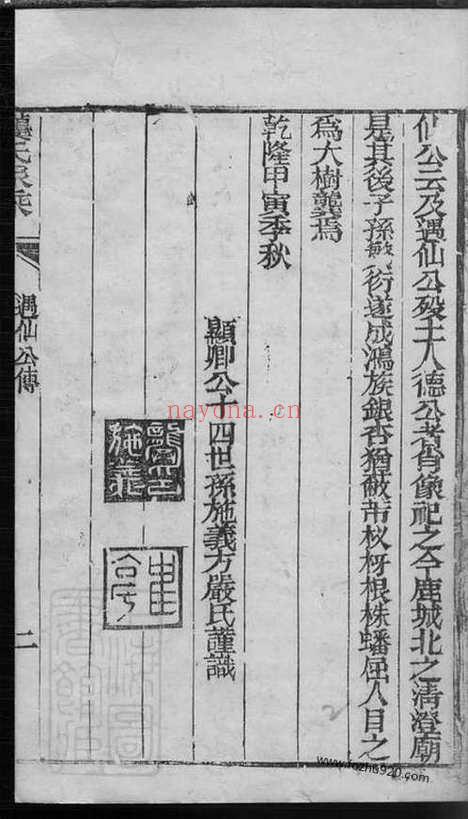 仙公云及遇仙公歿土人德公者肖像祀之今鹿城北之清澄廟
是其後子孫蕃衍遂成鴻族銀杏猶蔽芾杈枒根株蟠屈人目之
為大樹龔焉
乾隆甲寅季秋
顯卿公十四世孫施義方嚴氏謹識
龔氏家乘
遇仙公傳
二
nayona.cn
2
www.fozhi5920.com